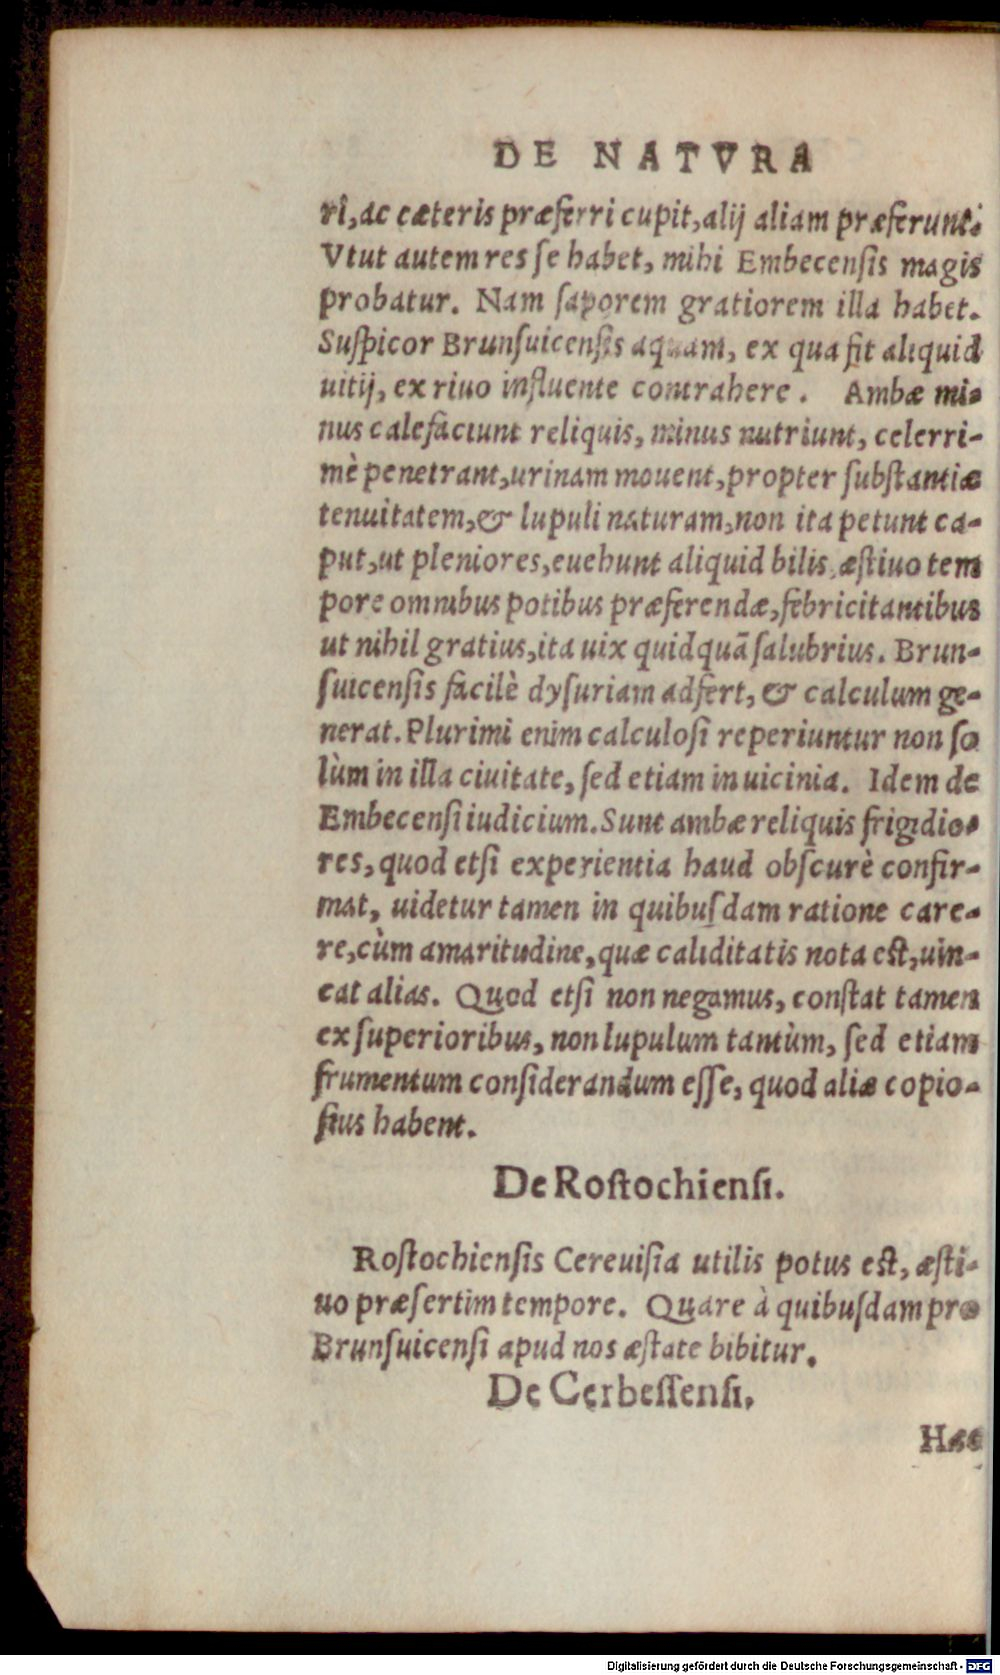 DE NATVRA
ri, ac cæteris præferri cupit, alij aliam præferunt.
Vtut autem res se habet, mihi Embecensis magis
probatur. Nam saporem gratiorem illa habet.
Suspicor Brunsuicensis aquam, ex qua fit aliquid
uitij, ex riuo influente contrahere. Ambæ mi-
nus calefaciunt reliquis, minus nutriunt, celerri-
mè penetrant, urinam mouent, propter substantiæ
tenuitatem, & lupuli naturam, non ita petunt ca-
put, ut pleniores, euehunt aliquid bilis, æstiuo tem
pore omnibus potibus præferendæ, febricitantibus
ut nihil gratius, ita uix quidquã salubrius. Brun-
suicensis facilè dysuriam adfert, & calculum ge-
nerat. Plurimi enim calculosi reperiuntur non so
lùm in illa ciuitate, sed etiam in uicinia. Idem de
Embecensi iudicium. Sunt ambæ reliquis frigidio-
res, quod etsi experientia haud obscurè confir-
mat, uidetur tamen in quibusdam ratione care-
re, cùm amaritudine, quæ caliditatis nota est, uin-
cat alias. Quod etsi non negamus, constat tamen
ex superioribus, non lupulum tantùm, sed etiam
frumentum considerandum esse, quod aliæ copio-
sius habent.
De Rostochiensi.
Rostochiensis Cereuisia utilis potus est, æsti-
uo præsertim tempore. Quare à quibusdam pro
Brunsuicensi apud nos æstate bibitur.
De Cerbessensi.
Hæc
Digitalisierung gefördert durch die Deutsche Forschungsgemeinschaft - DFG